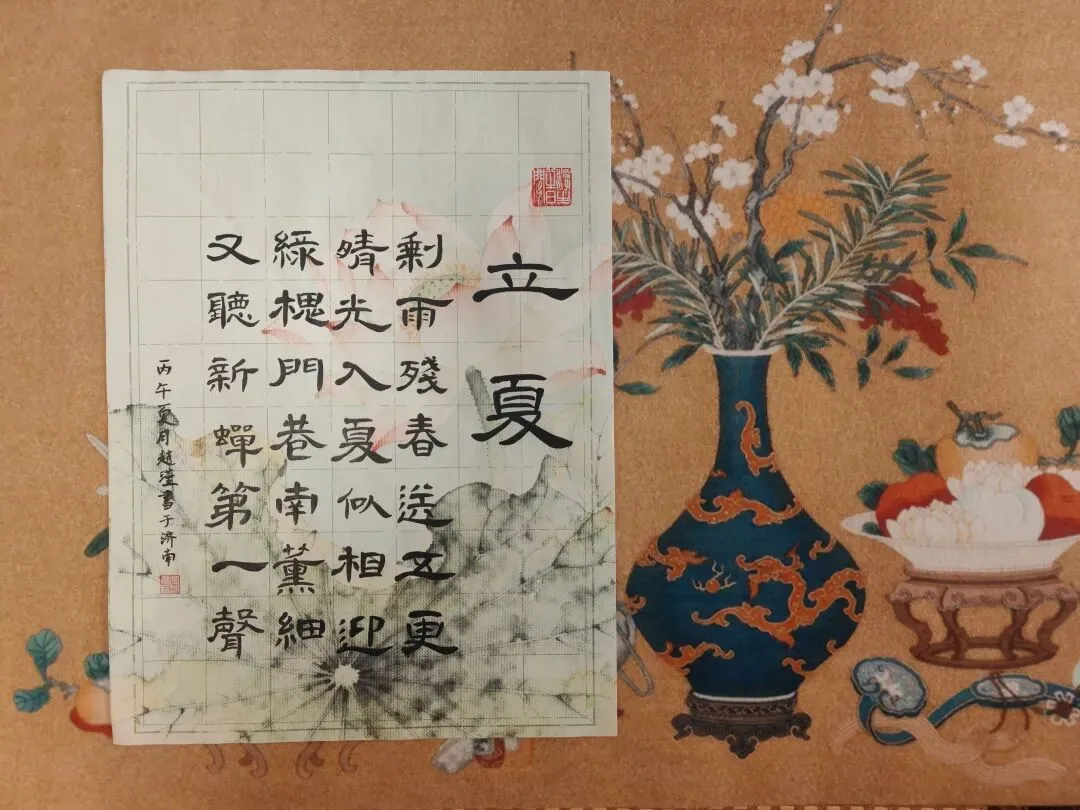 立夏
剩雨殘春送五更
晴光入夏似相迎
綠槐門巷南薰細
又聽新蟬第一聲
丙午夏月趙瀅書于济南